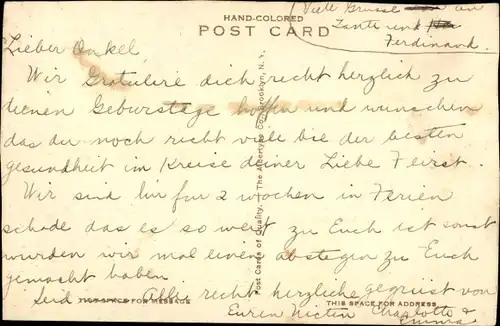 HAND-COLORED
POST CARD
(Viele Grüsse an
Tante und
Ferdinand.
Lieber Onkel,
Wir Gratulire dich recht herzlich zu
deinen Geburstage hoffen und wünschen
das du noch recht viele bie der besten
gesundheit im Kreise deiner Liebe Feirst.
Wir sind hir für 2 wochen in Ferien
schade das es so weit zu Euch ist sonst
wurden wir mal einen abstegen zu Euch
gemacht haben.
Seid Alle recht herzliche gegrüst von
Euren Nicten Charlotte &
Emma
THIS SPACE FOR MESSAGE
THIS SPACE FOR ADDRESS
Post Cards of Quality. - The Albertype Co., Brooklyn, N. Y.